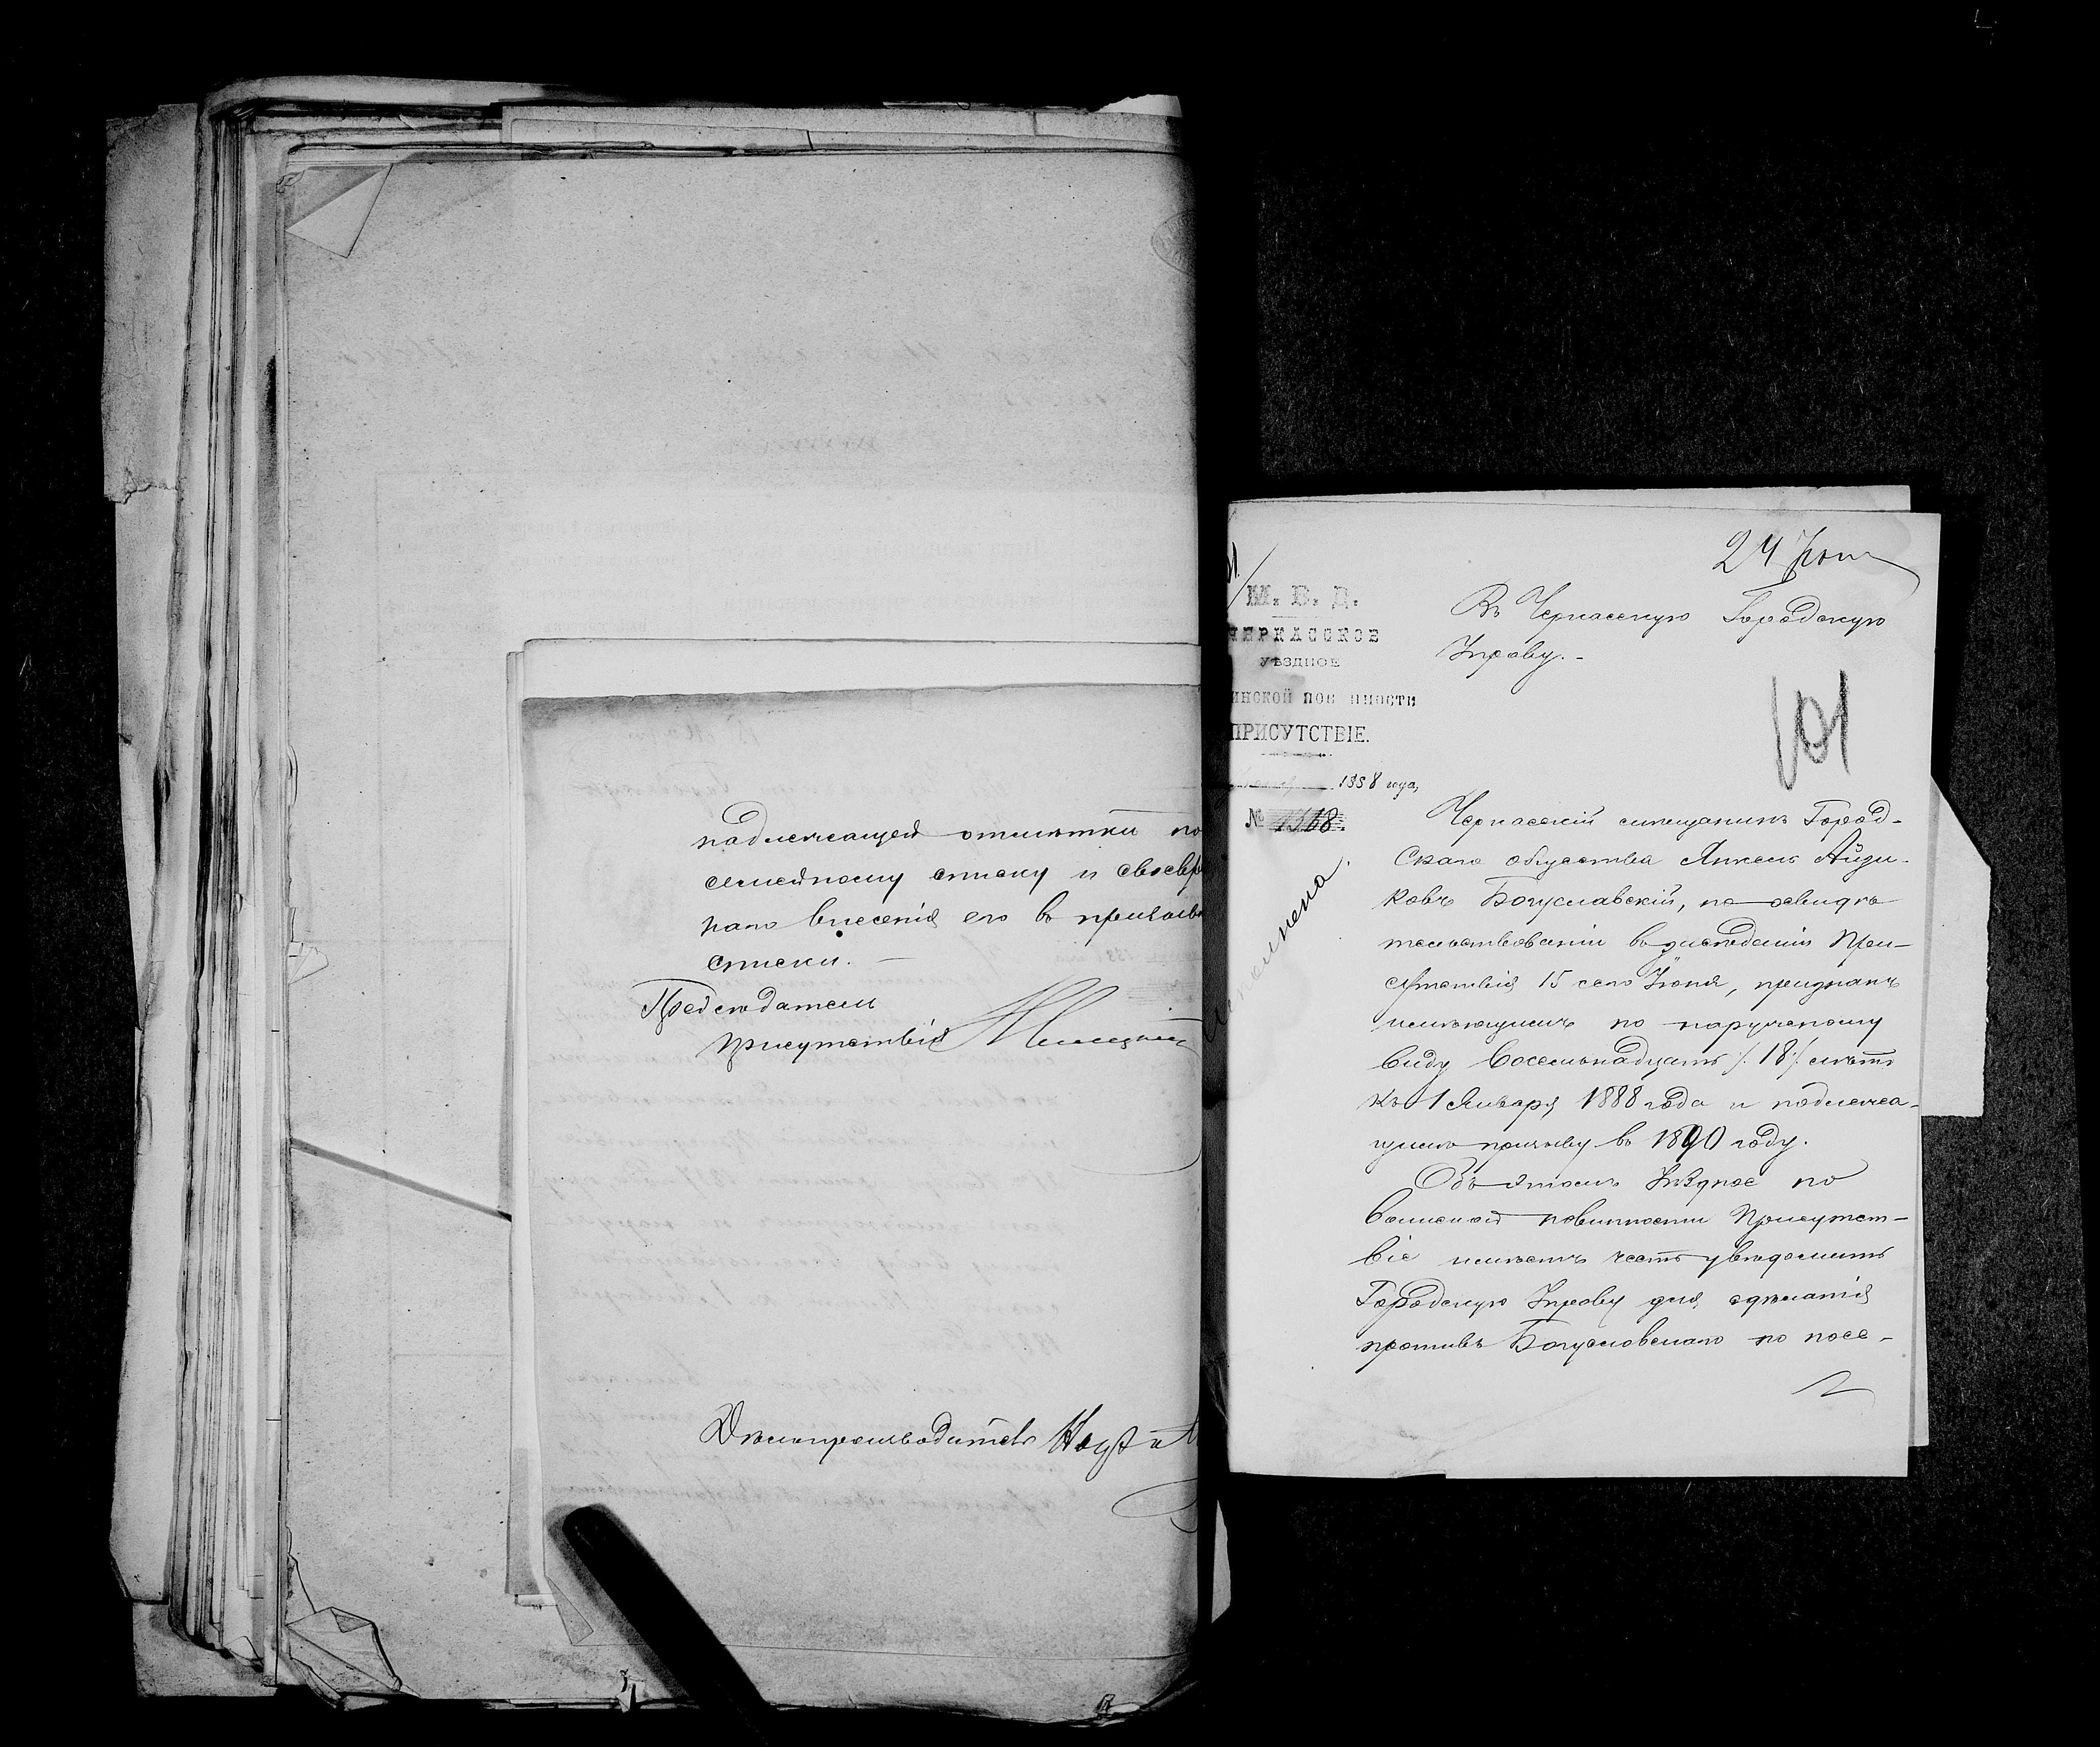 надлежащей отмѣтки по
семейному списку и своевр
наго внесенія его въ призыв
списки. —
Предсѣдатель
Присутствія
Дѣлопроизводитель
24 Іюн
М. В. Д.
ЧЕРКАССКОЕ
УѢЗДНОЕ
ИНСКОЙ ПОВ ННОСТИ
ПРИСУТСТВІЕ.
1888 года,
№ 1368.
Въ Черкасскую Городскую
Управу. –
101
Черкасскій мѣщанинъ Город-
скаго общества Янкель Айзи-
ковъ Богуславскій, по освидѣ
тельствованіи въ засѣданіи При-
сутствія 15 сего Іюня, признанъ
имѣющимъ по наружному
виду восемьнадцать /. 18 /. лѣтъ
къ 1 Января 1888 года и подлежа-
щимъ призыву въ 1890 году.
Объ этомъ Уѣздное по
воинской повинности Присутст-
віе имѣетъ честь увѣдомить
Городскую Управу для сдѣланія
противъ Богуславскаго по посе-